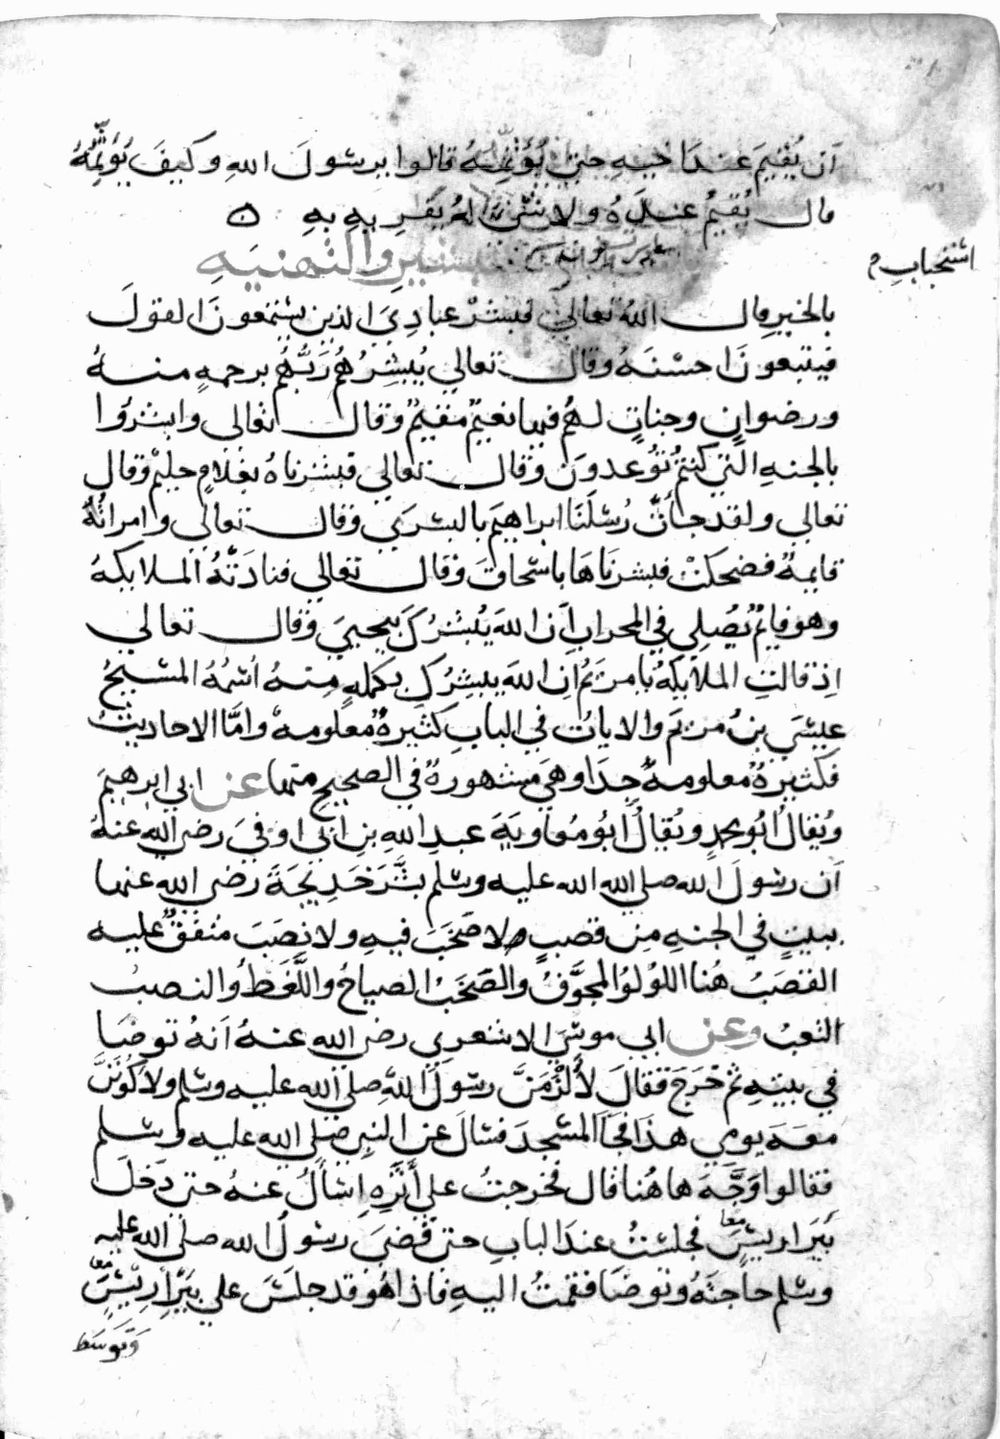 ان يُقيمَ عند اخيهِ حتى يُؤَثِّمَهُ قالوا يرسُولَ اللهِ وكيفَ يُؤَثِّمُهُ
قال يُقيمُ عندَهُ ولا شىَ لهُ يَقرِيهِ بهِ ه
استحباب
التبشيرِ والتهنيهِ
بالخيرِ قال اللهُ تعالى فبشرْ عبادِيَ الذين يستمعونَ القولَ
فيتبعونَ احسْنَهُ وقال تعالي يُبشِرُهُم رَبُّهُم برحمهٍ منهُ
ورضوانٍ وجناتٍ لهُم فيها نعيمٌ مقيمٌ وقال تعالى وابشرُوا
بالجنهِ التي كنتُم تُوعدونَ وقال تعالي فبشرناهُ بغلامٍ حليمٍ وقال
تعالي ولقد جاَتْ رُسُلَنَا ابراهيمَ بالبشرَي وقال تعالى وامراتُهُ
قايمةٌ فضحكتْ فبشرنَاهَا باسْحاقَ وقال تعالي فنادَتْهُ الملايكهُ
وهو قايمٌ يُصَلي في المحرابِ اَن اللهَ يُبشرُكَ بيحييَ وقال تعالي
اِذ قالتِ الملايكهُ يا مريَمُ اِن اللهَ يبشِرُكِ بكلمهٍ مِنهُ اسْمُهُ المسيحُ
عيسَي بنُ مريَم والاياتُ في البابِ كثيرةٌ معلومهٌ وامَّا الاحاديثُ
فكثيرةٌ معلومهٌ جدا وهيَ مشهورةٌ في الصحيحِ منها عن ابي ابرهيمَ
ويُقالُ ابُو محمدٍ ويُقالُ ابُو مُعاويَةَ عبدِ اللهِ بنِ ابي اوفيَ رضي الله عنهُ
اَن رسُولَ الله صلي الله عليه وسَلم بشَّرَ خَدِيجَةَ رضي الله عنها
ببيتٍ في الجنهِ مِن قصبٍ لا صَخَبَ فيهِ ولا نصَبَ متفقٌ عليهِ
القصَبُ هُنا اللولُوُ المجوَّفُ والصَّخَبُ الصياحُ واللَّغَطُ والنصبُ
التعبُ وعن ابي موسَي الاشعري رضي الله عنهُ اَنهُ توضَا
في بيتهِ ثم خرَجَ فقالَ لأَلزَمَنَّ رسُولَ اللهِ صلي الله عليه وسَلم ولاكُونَنَّ
معَهَ يومي هذا فجاَ المسْجدَ فسَالَ عن النبيِ صَلي الله عليه وسَلم
فقالوا وَجَّهَ هاهُنا قال فخرجتُ علي أَثَرِهِ اسْالُ عنهُ حتى دَخلَ
بيرَ اريسٍ معا فجلسْتُ عندَ البابِ حتى قضَي رسُولُ الله صلى الله عليه
وسَلم حاجتَهُ وتوضَا فقمتُ اليهِ فاذا هُو قد جلسَ علي بيرِ أريسٍ معا
وتوسَّط